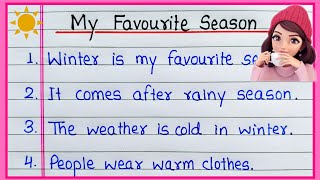 My Favourite Season
1. Winter is my favourite se
2. It comes after rainy season.
3. The weather is cold in winter.
4. People wear warm clothes.